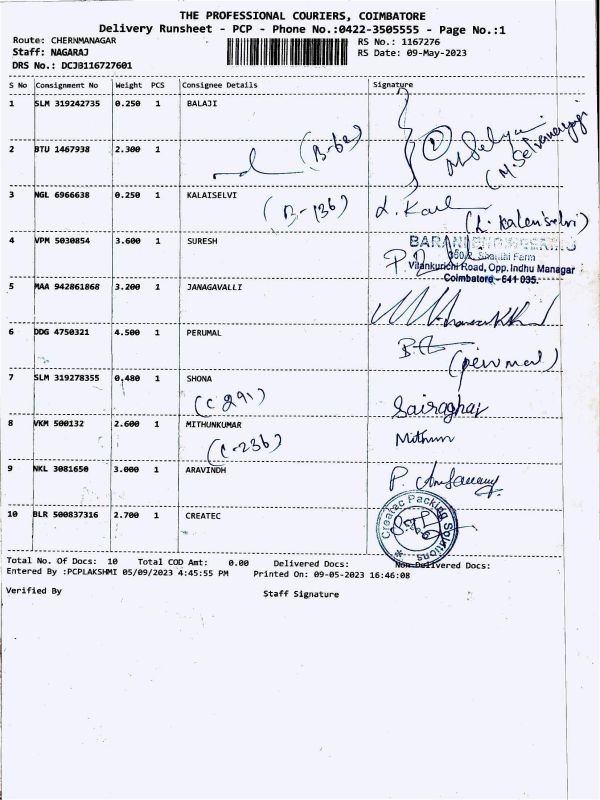 THE PROFESSIONAL COURIERS, COIMBATORE
Delivery Runsheet - PCP - Phone No.:0422-3505555 - Page No.:1
Route: CHERNMANAGAR RS No.: 1167276
Staff: NAGARAJ RS Date: 09-May-2023
DRS No.: DCJB116727601
S No Consignment No Weight PCS Consignee Details Signature
1 SLM 319242735 0.250 1 BALAJI
2 BTU 1467938 2.300 1
(B-62)
(M. Selvamurugi)
3 NGL 6966638 0.250 1 KALAISELVI
(B-136) (L. Kalaiselvi)
4 VPM 5030854 3.600 1 SURESH BARANI ENGINEERING
360/2, Shanthi Farm
Vilankurichi Road, Opp. Indhu Managar
Coimbatore - 641 035.
5 MAA 942861868 3.200 1 JANAGAVALLI
6 DDG 4750321 4.500 1 PERUMAL
(perumal)
7 SLM 319278355 0.480 1 SHONA
(C 291) Sairaghav
8 VKM 500132 2.600 1 MITHUNKUMAR Mithun
(C-236)
9 NKL 3081650 3.000 1 ARAVINDH
10 BLR 500837316 2.700 1 CREATEC
Createc Packing Solutions
Total No. Of Docs: 10 Total COD Amt: 0.00 Delivered Docs: Non-Delivered Docs:
Entered By :PCPLAKSHMI 05/09/2023 4:45:55 PM Printed On: 09-05-2023 16:46:08
Verified By Staff Signature